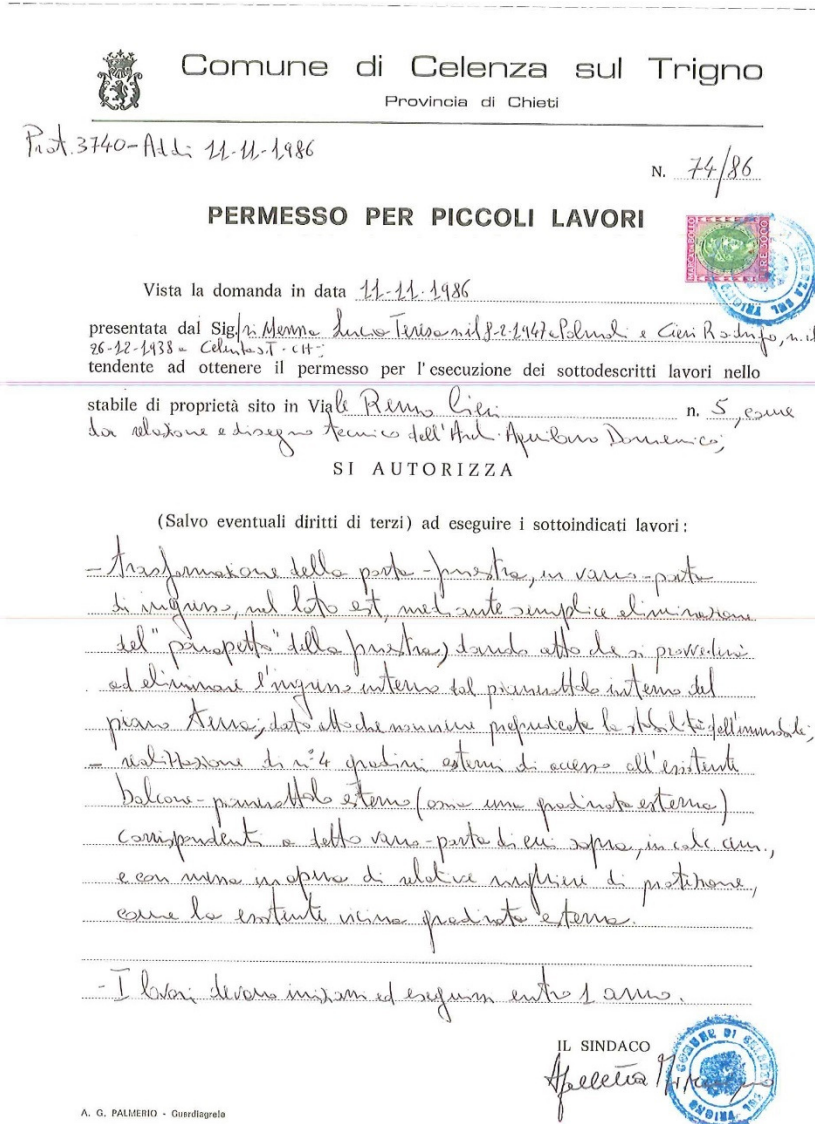 Comune di Celenza sul Trigno
Provincia di Chieti
Prot. 3740 - Addì 11-11-1986
N. 74/86
PERMESSO PER PICCOLI LAVORI
MARCA DA BOLLO
LIRE 3000
Vista la domanda in data 11-11-1986
presentata dal Sig/ri Menna Lucia Teresa n. il 8-2-1947 a e Cieri Rodolfo, n. il
26-12-1938 a Celenza s.T. - CH -;
tendente ad ottenere il permesso per l'esecuzione dei sottodescritti lavori nello
stabile di proprietà sito in Viale Remo Cieri n. 5, come
da relazione e disegno tecnico dell'Arch. Aquilano Domenico;
SI AUTORIZZA
(Salvo eventuali diritti di terzi) ad eseguire i sottoindicati lavori:
- trasformazione della porta-finestra, in vano-porta
di ingresso, nel lato est, mediante semplice eliminazione
del "parapetto" della finestra, dando atto che si provvederà
ad eliminare l'ingresso interno dal pianerottolo interno del
piano terra; dato atto che non viene pregiudicata la stabilità dell'immobile;
- realizzazione di n° 4 gradini esterni di accesso all'esistente
balcone-pianerottolo esterno (ossia una gradinata esterna)
corrispondenti a detto vano-porta di cui sopra, in calc. arm.,
e con messa in opera di relative ringhiere di protezione,
come la esistente vicina gradinata esterna.
- I lavori devono iniziarsi ed eseguirsi entro 1 anno.
IL SINDACO
COMUNE DI CELENZA SUL TRIGNO
A. G. PALMERIO - Guardiagrele